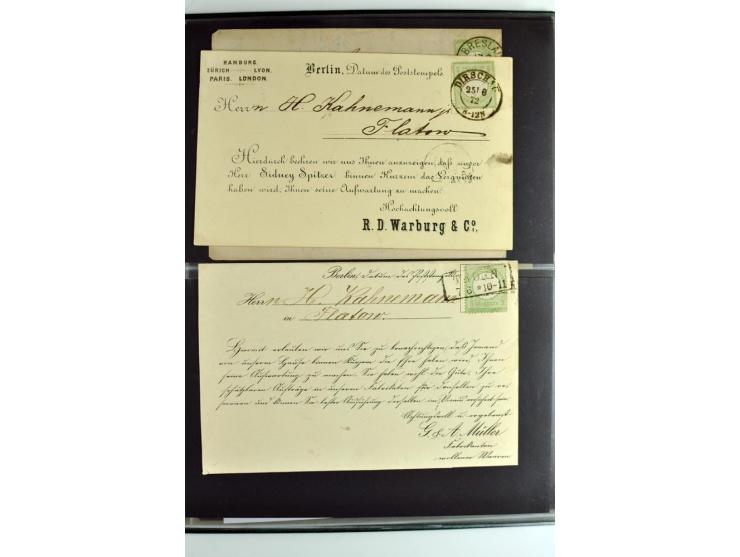 BRESLAU
HAMBURG.
ZÜRICH — LYON.
PARIS. LONDON.
Berlin, Datum des Poststempels.
DIRSCHAU
25 6
72
Herrn H. Kahnemann jr
Flatow
Hierdurch beehren wir uns Ihnen anzuzeigen, daß unser
Herr Sidney Spitzer binnen Kurzem das Vergnügen
haben wird, Ihnen seine Aufwartung zu machen.
Hochachtungsvoll
R. D. Warburg & Co.
Berlin, Datum des
10-11
Herrn H. Kahnemann
in Flatow.
Hiermit erlauben wir uns Sie zu benachrichtigen, daß Jemand
von unserem Hause binnen kurzem die Ehre haben wird, Ihnen
seine Aufwartung zu machen. Sie haben wohl die Güte, Ihre
schätzbaren Aufträge in unseren Fabrikaten für denselben zu re-
serviren und können Sie bester Ausführung derselben im Voraus versichert sein.
Achtungsvoll u. ergebenst
G & A. Müller
Fabrikanten
wollener Waaren